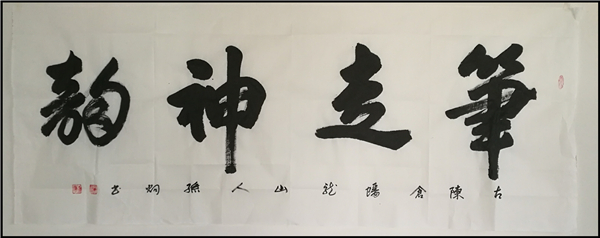 筆走神韵
古陳倉蟠龍山人孫炯書